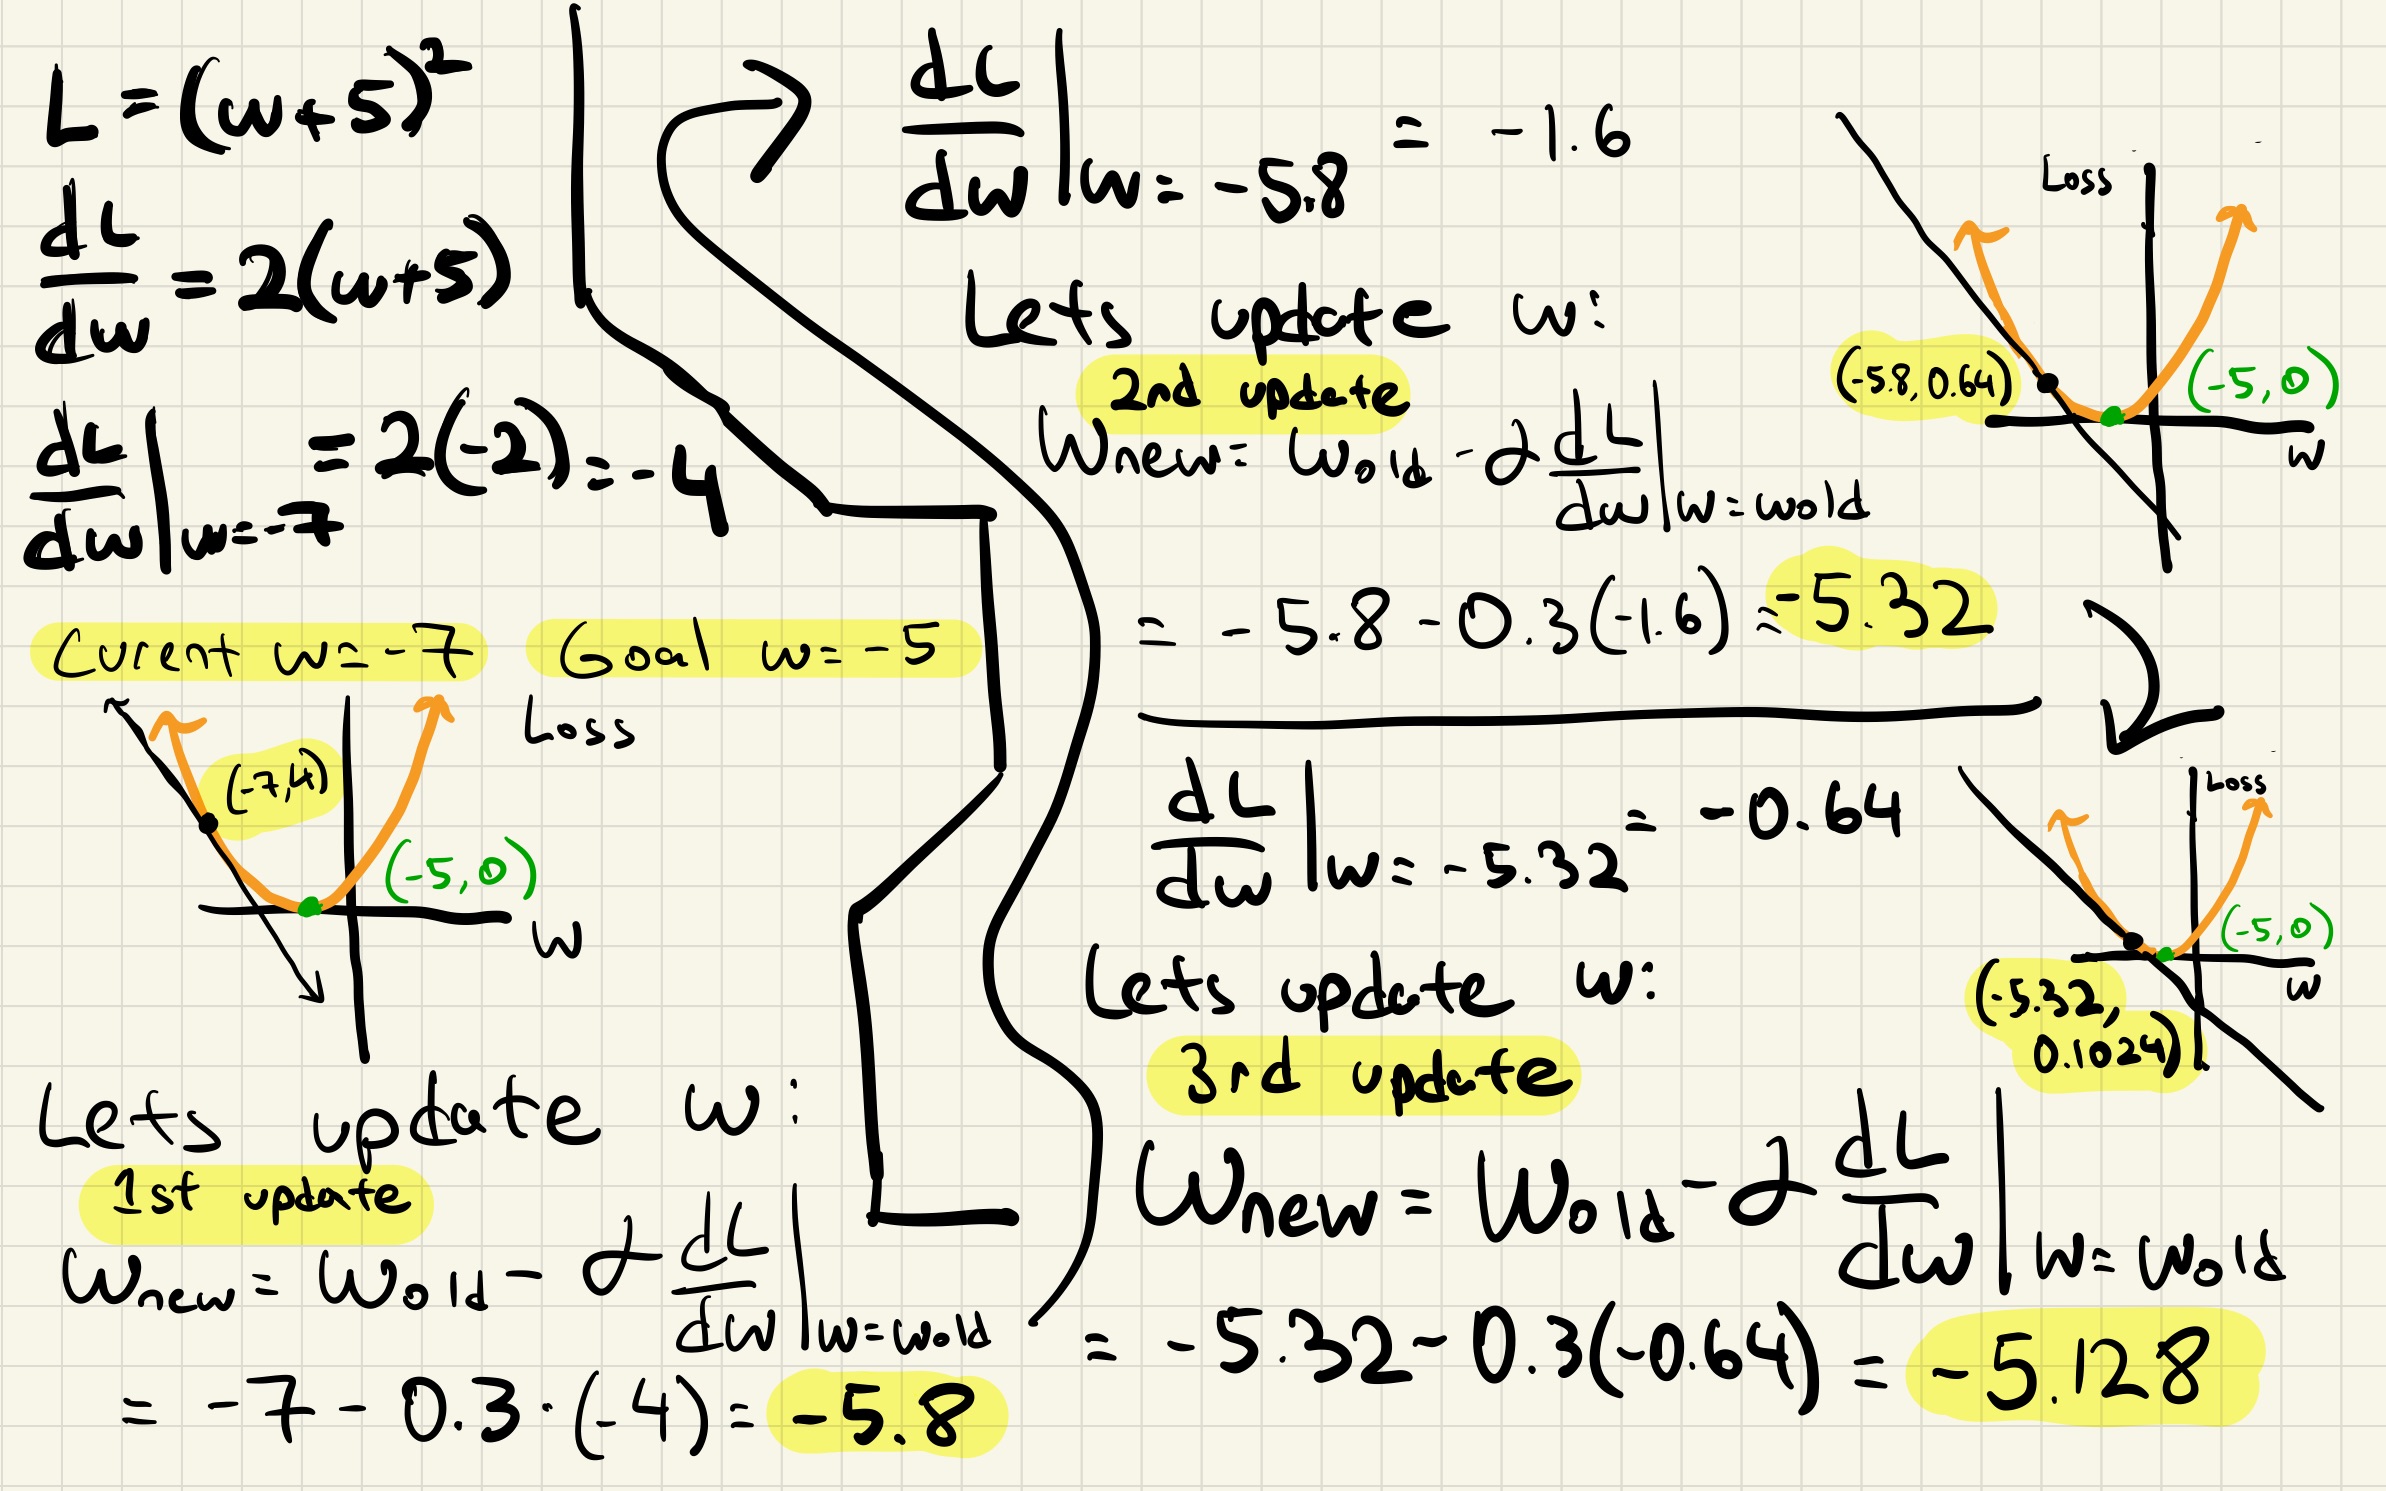 L = (w+5)²
dL/dw = 2(w+5)
dL/dw | w=-7 = 2(-2) = -4
Curent w=-7 Goal w=-5
Loss
(-7,4)
(-5,0)
w
Lets update w:
1st update
Wnew = Wold - α dL/dw | w=wold
= -7 - 0.3·(-4) = -5.8
dL/dw | w=-5.8 = -1.6
Lets update w:
2nd update
Wnew = Wold - α dL/dw | w=wold
= -5.8 - 0.3(-1.6) = -5.32
Loss
(-5.8, 0.64)
(-5,0)
w
dL/dw | w=-5.32 = -0.64
Lets update w:
3rd update
Wnew = Wold - α dL/dw | w=wold
= -5.32 - 0.3(-0.64) = -5.128
Loss
(-5,0)
w
(-5.32,
0.1024)